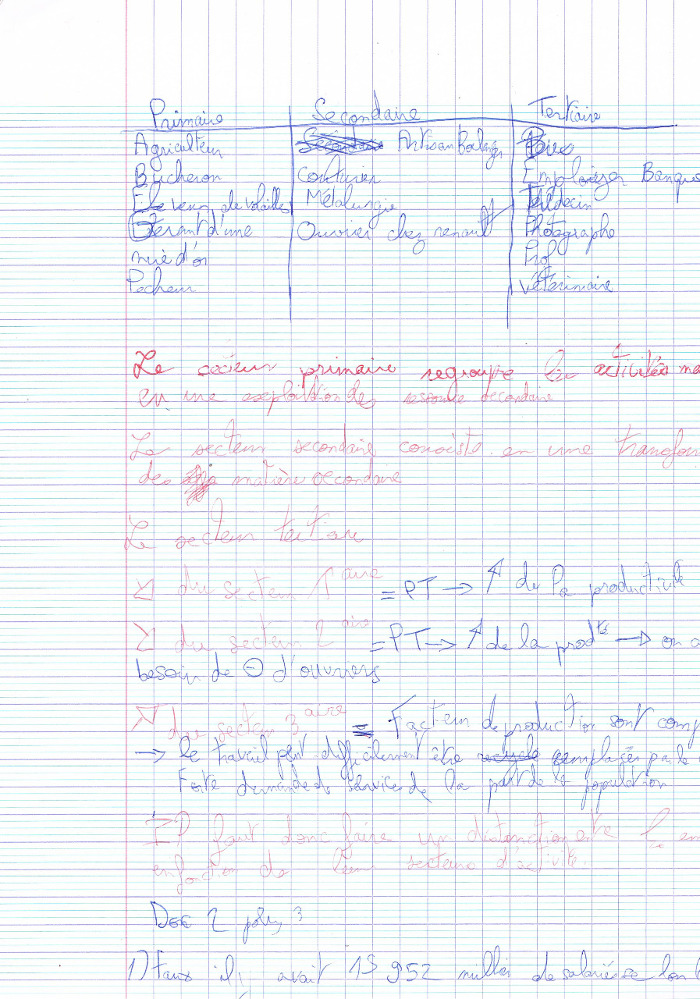 Primaire Secondaire Tertiaire
Agriculteur Artisan Boulanger
Bucheron Couturier Employé Banque
Eleveur de volailles Métalurgie Médecin
Gérant d'une Ouvrier chez renault Photographe
mine d'or Prof
Pecheur Vétérinaire
Le secteur primaire regroupe les activités
en une exploitation des ressource secondaire
Le secteur secondaire consiste en une transfor
des matière secondaire
Le secteur tertiaire
↘ du secteur 1 aire = PT → ↑ de la productivité
↘ du secteur 2 aire = PT → ↑ de la prodté → on a
besoin de ⊖ d'ouvriers
↗ du secteur 3 aire = Facteur de production sont comp
→ le travail peut difficilement être remplacés par le
Forte demande de service de la part de la population
Il faut donc faire un distinction entre les em
en fonction de leur secteur d'activité.
Doc 2 poly 3
1) Faux il y avait 13 952 milles de salariés